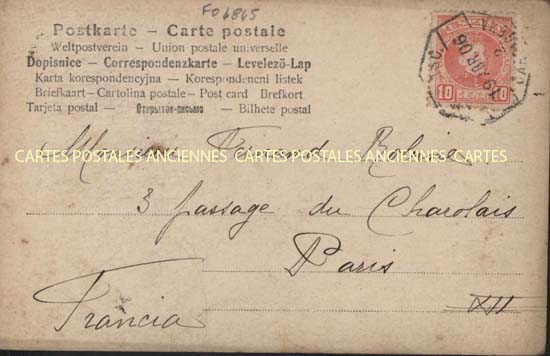 FO6865
Postkarte – Carte postale
Weltpostverein – Union postale universelle
Dopisnice – Correspondenzkarte – Levelező-Lap
Karta korespondencyjna – Korespondencni listek
Briefkaart – Cartolina postale – Post card Brefkort
Tarjeta postal – Открытое письмо – Bilhete postal
10 10
CARTES POSTALES ANCIENNES CARTES POSTALES ANCIENNES CARTES
Monsieur Fernand
3 passage du Charolais
Paris
XII
Francia